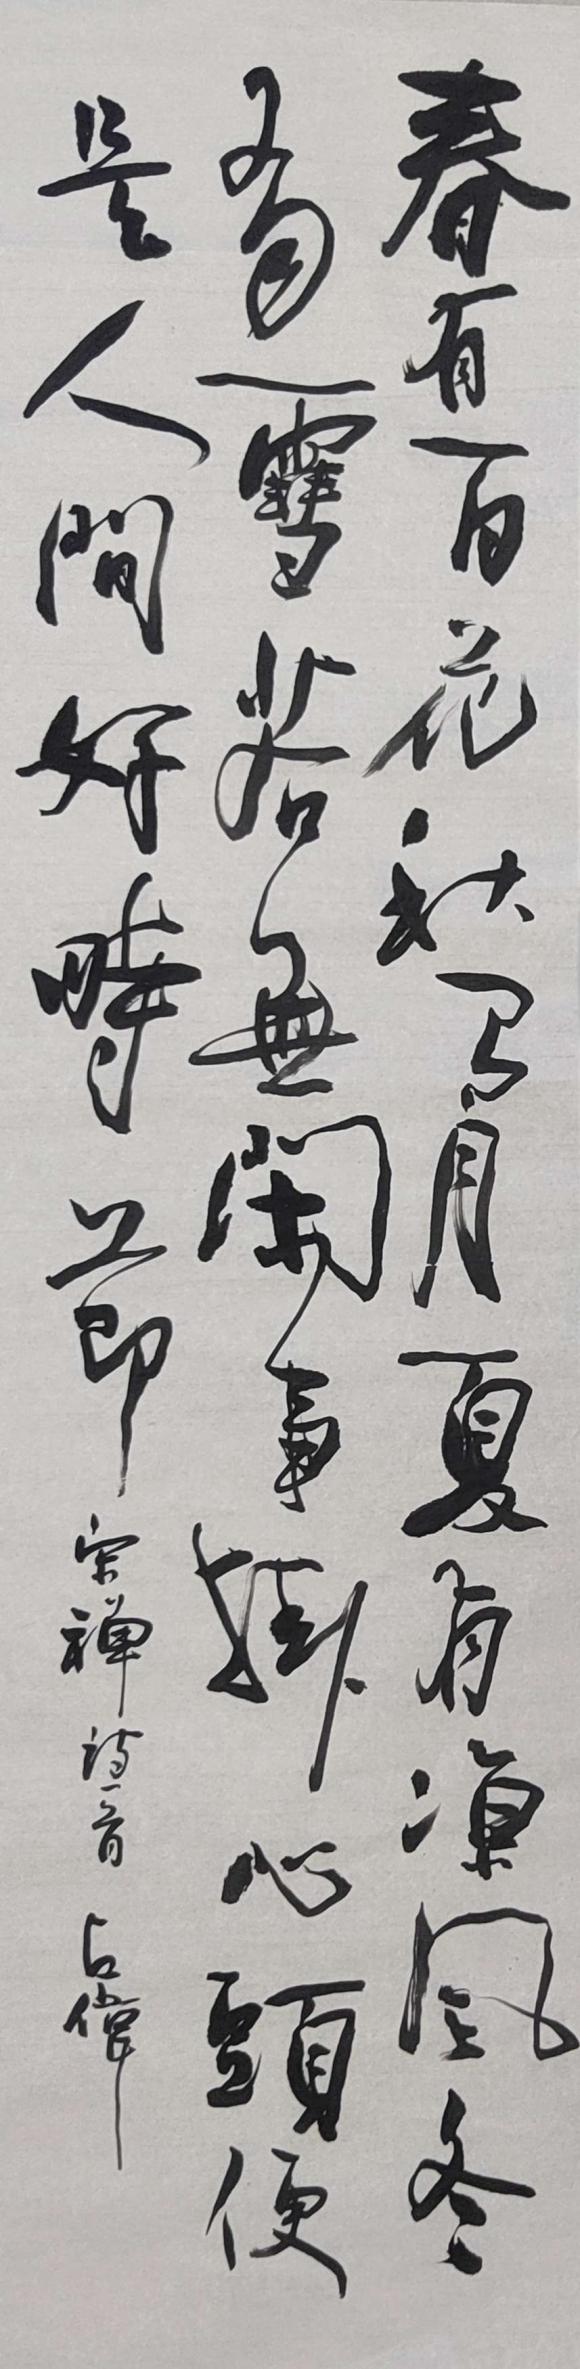 春有百花秋有月夏有凉風冬
有雪若無閑事掛心頭便
是人間好時節
宋禅詩一首 占偉